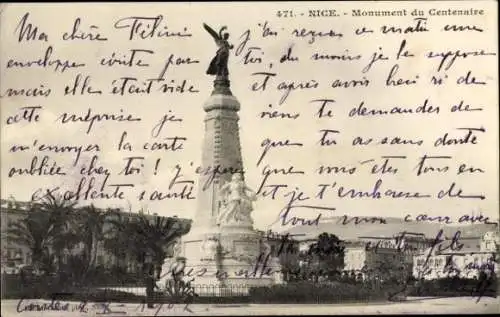 471. - NICE. - Monument du Centenaire
Ma chère Filini j'ai reçu ce matin une
enveloppe écrite par toi, du moins je le suppose
mais elle était vide et après avoir bien ri de
cette méprise je viens te demander de
m'envoyer la carte que tu as sans doute
oubliée chez toi! j'espère que vous êtes tous en
excellente santé et je t'embrasse de
tout mon cœur avec